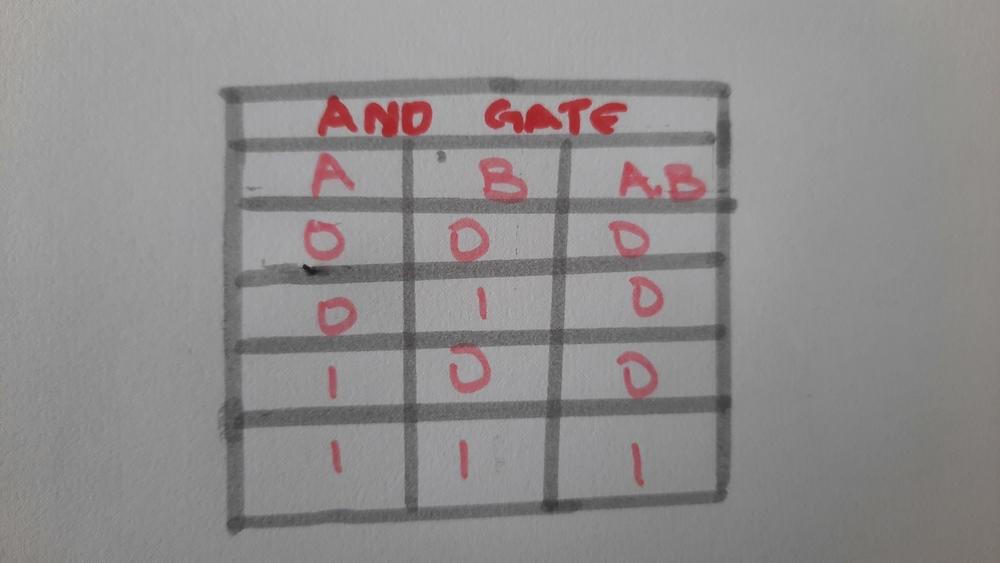 AND GATE
A B A.B
0 0 0
0 1 0
1 0 0
1 1 1